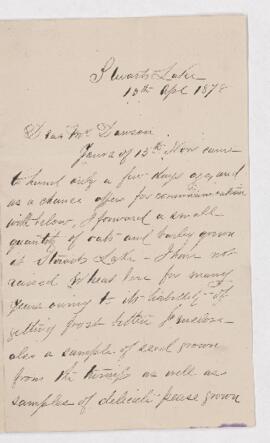 Stuarts Lake
15th Apl 1878
Dear Mr Dawson
Yours of 15th Nov came
to hand only a few days ago, and
as a chance offers for communication
with below, I forward a small
quantity of oats and barley grown
at Stuarts Lake - I have not
raised wheat here for many
years owing to its liability of
getting frost bitten
also a sample of seed grown
from the as well as
samples of pease grown